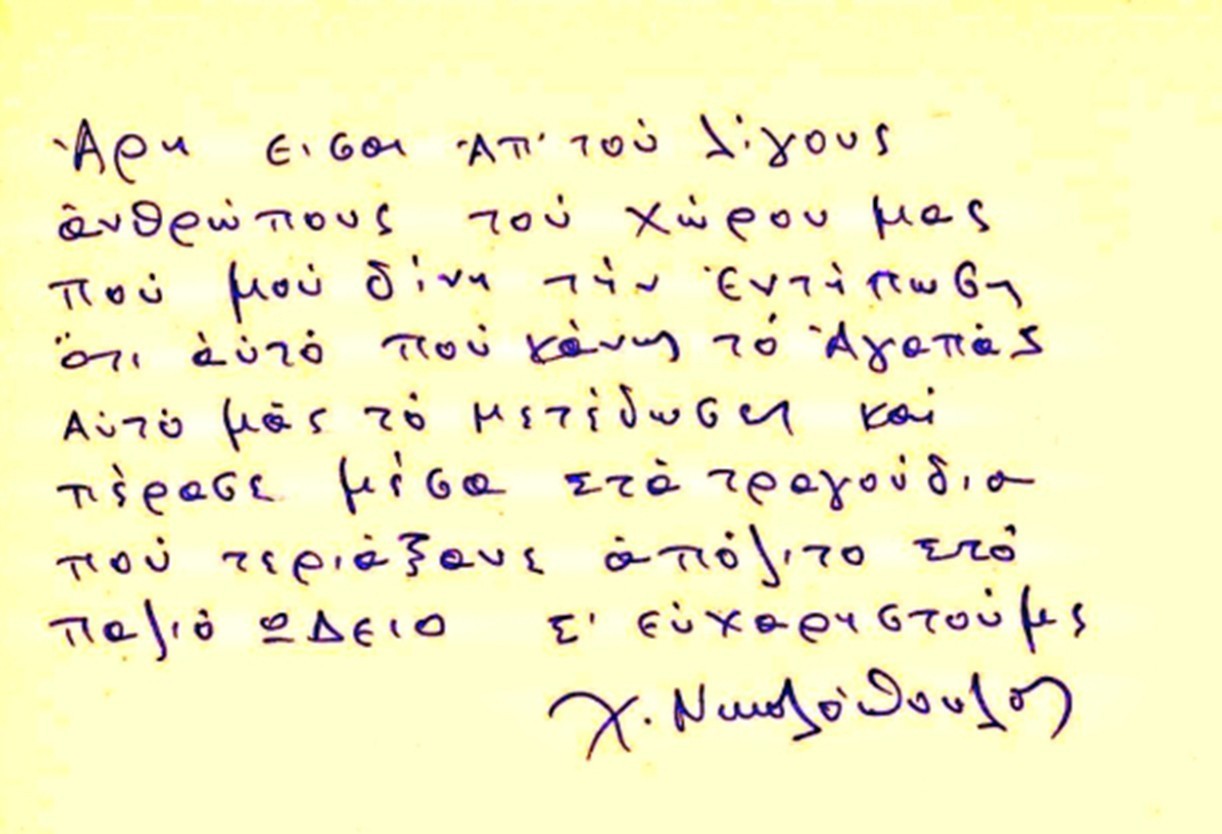 Ἄρη εισαι Ἀπ' τού λίγους
ἀνθρώπους τού χώρου μας
πού μού δίνη τήν Ἐντήπωση
ὅτι αὐτό πού κάνης τό Ἀγαπάς
Αὐτό μᾶς τό μετέδωσεη καί
πέρασε μέσα στά τραγούδια
πού τεριάξανε ἀπόλιτο στό
παλιό ΩΔειο Σ' εὐχαρηστούμε
Χ. Νικολόπουλος